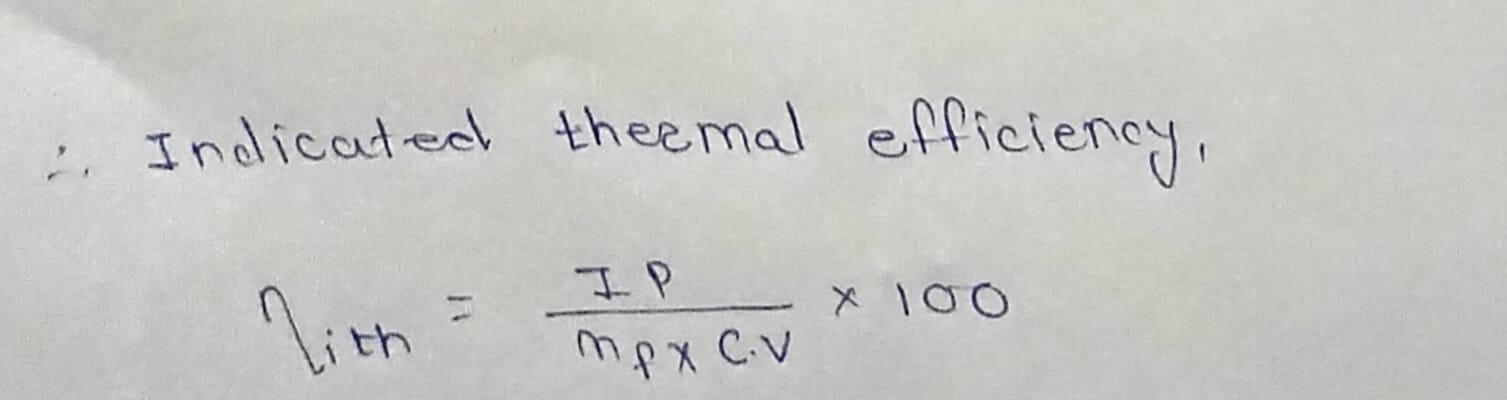 ∴ Indicated thermal efficiency,
ηith = IP / mf x C.V x 100